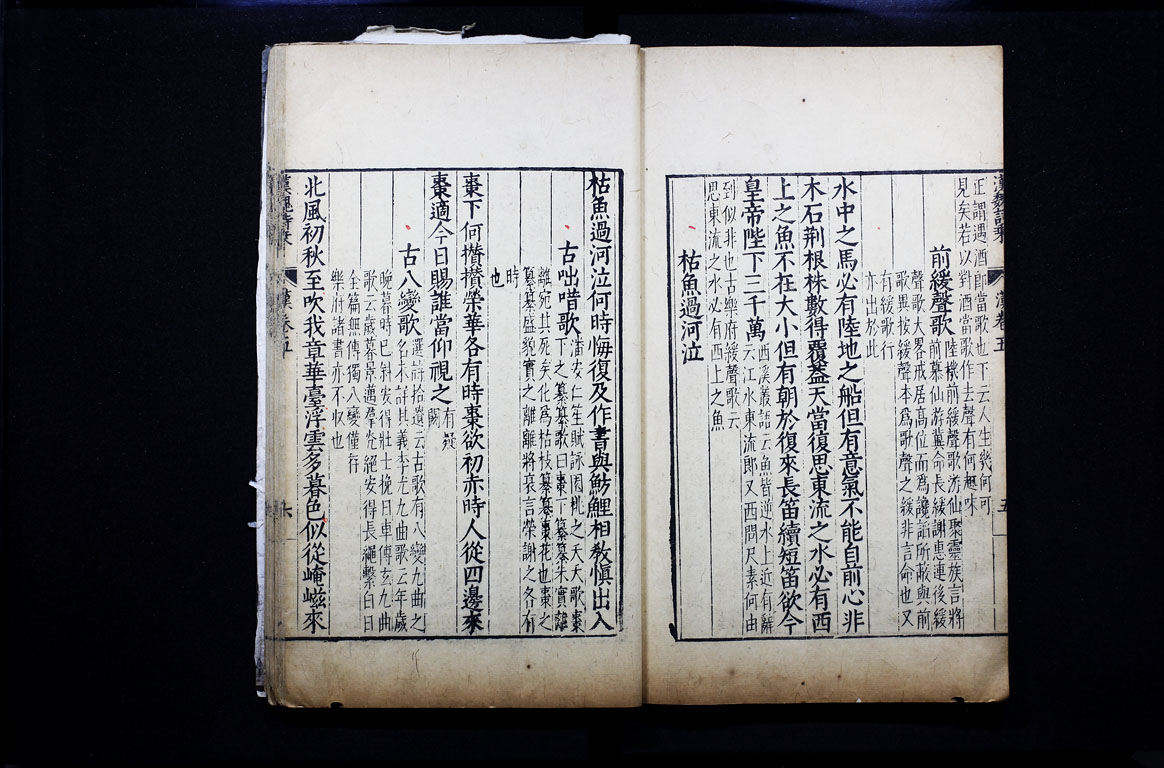 漢魏詩乘
漢卷五
五
正謂遇酒即當歌也下云人生幾何可
見矣若以對酒當歌作去聲有何趣味
前緩聲歌
陸機前緩聲歌游仙聚靈族言將
前慕仙游冀命長緩謝惠連後緩
聲歌大畧戒居高位而為讒諂所蔽與前
歌異按緩聲本為歌聲之緩非言命也又
有緩歌行
亦出於此
水中之馬必有陸地之船但有意氣不能自前心非
木石荆根株數得覆蓋天當復思東流之水必有西
上之魚不在大小但有朝於復來長笛續短笛欲今
皇帝陛下三千萬
西溪叢語云魚皆逆水上近有辭
云江水東流郎又西問尺素何由
到似非也古樂府緩聲歌云
思東流之水必有西上之魚
枯魚過河泣
枯魚過河泣何時悔復及作書與魴鯉相教慎出入
古咄唶歌
潘安仁笙賦詠園桃之夭夭歌棗
下之纂纂歌曰棗下纂纂朱實離
離宛其死矣化為枯枝纂纂棗花也棗之
纂纂盛貌實之離離將衰言榮謝之各有
時
也
棗下何攢攢榮華各有時棗欲初赤時人從四邊來
棗適今日賜誰當仰視之
有疑
闕
古八變歌
選詩拾遺云古歌有八變九曲之
名未詳其義李尤九曲歌云年歲
晚暮時已斜安得壯士挽日車傳玄九曲
歌云歲暮景邁羣光絕安得長繩繫白日
全篇無傳獨八變僅存
樂府諸書亦不收也
北風初秋至吹我章華臺浮雲多暮色似從崦嵫來
漢魏詩乘
漢卷五
六